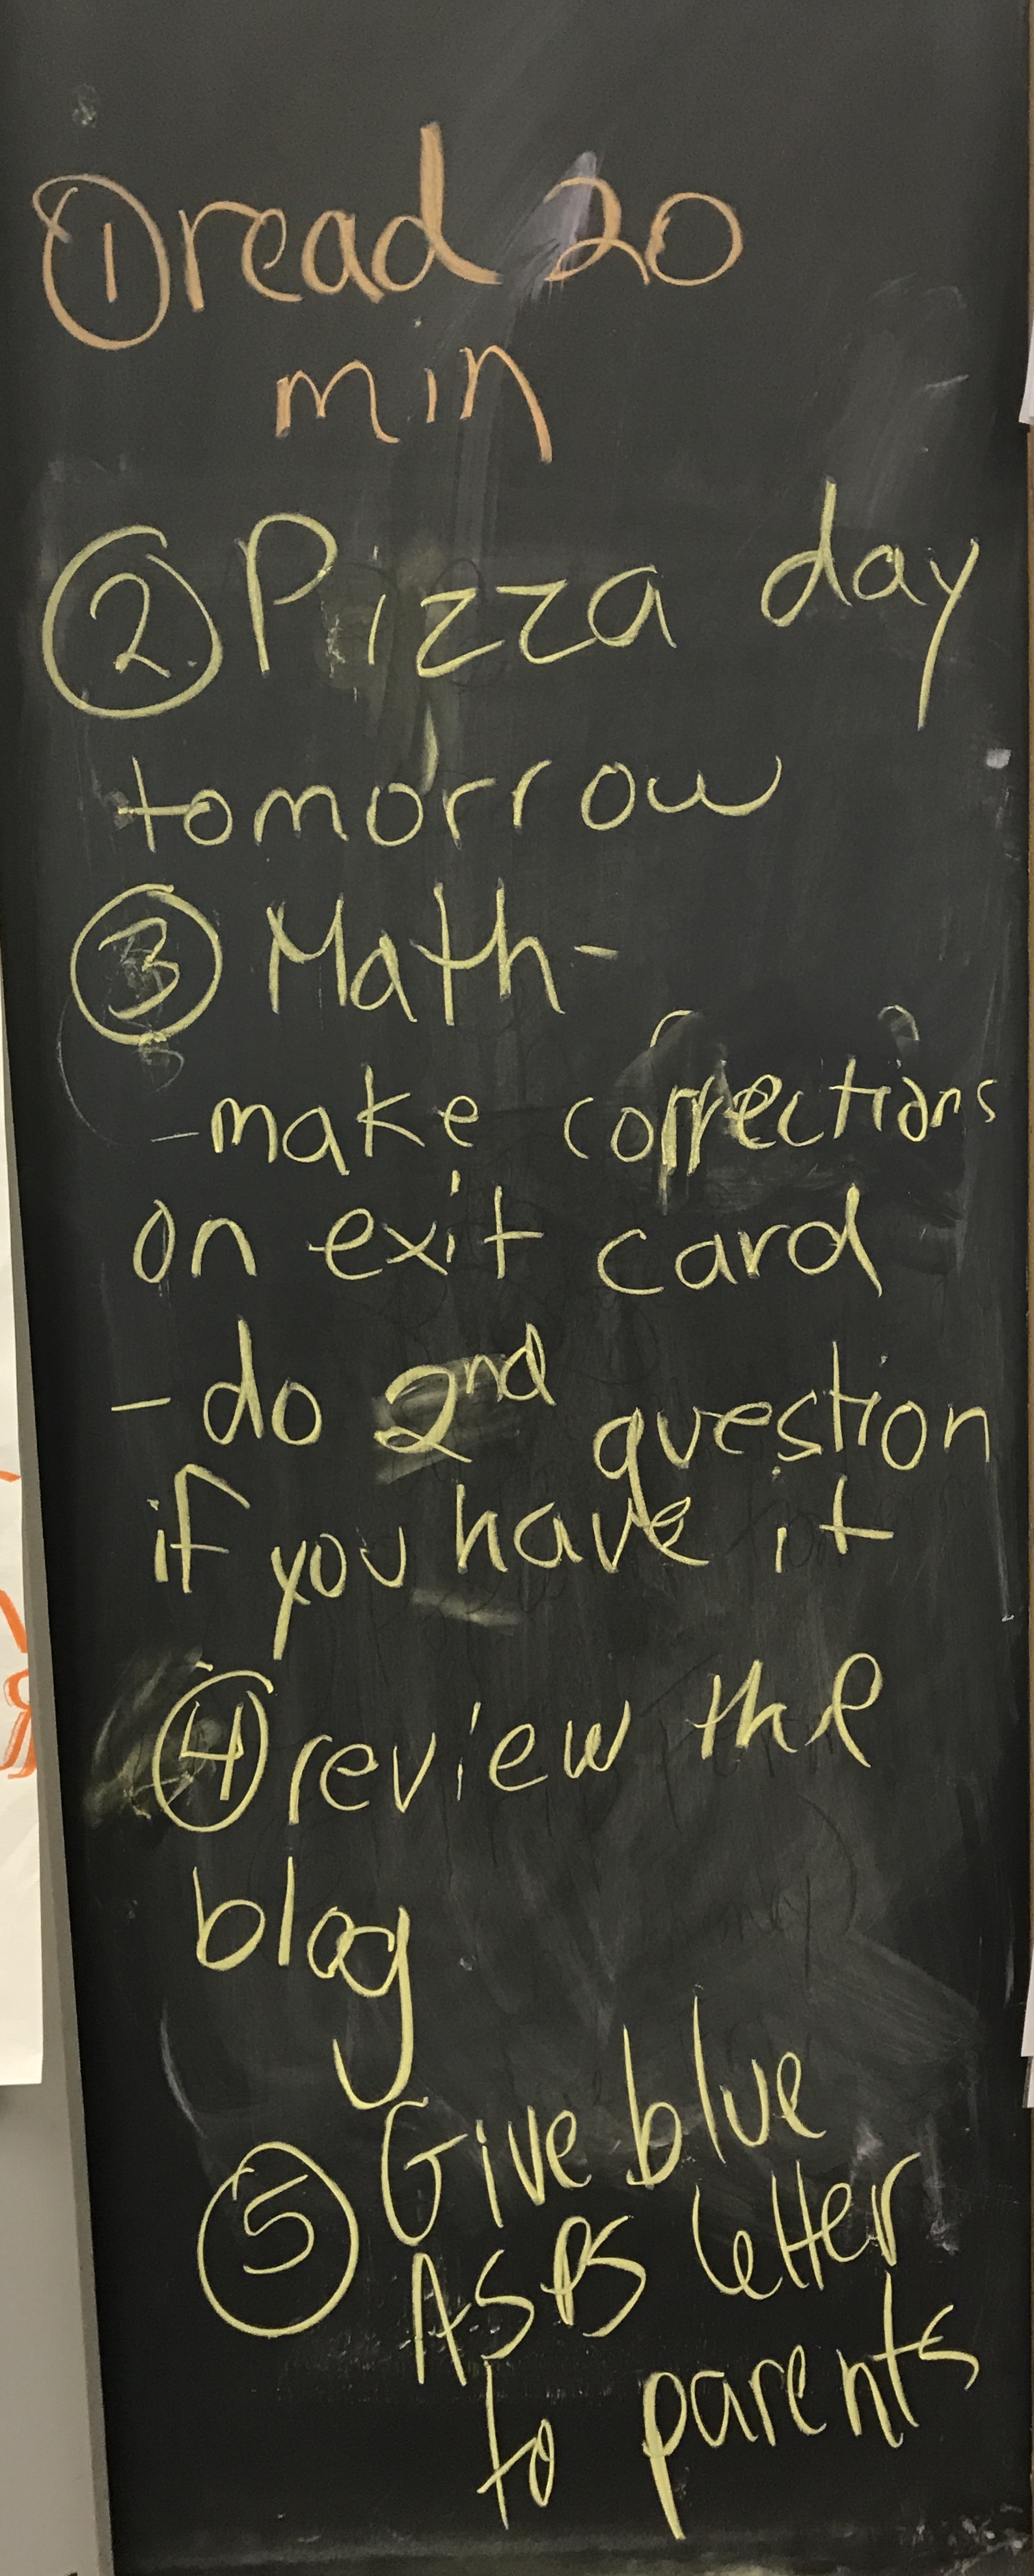 ① read 20
min
② Pizza day
tomorrow
③ Math-
-make corrections
on exit card
- do 2nd question
if you have it
④ review the
blog
⑤ Give blue
ASPS letter
to parents